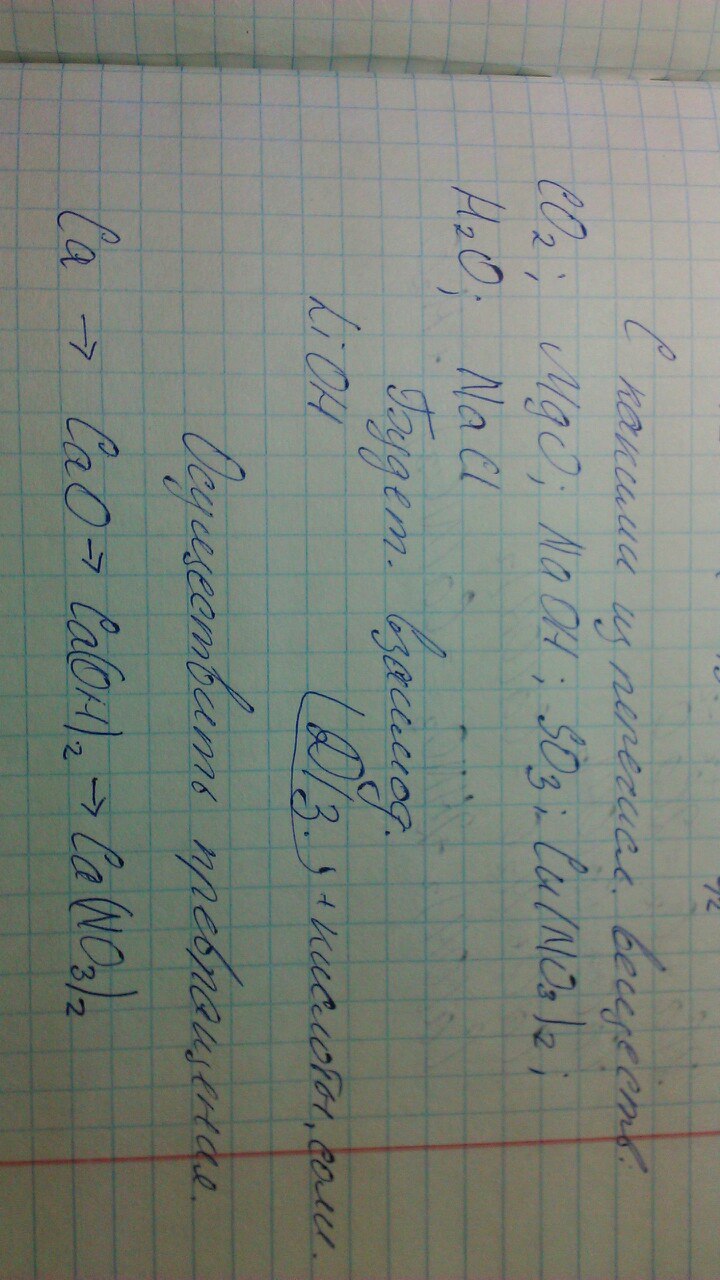 С какими из перечисл. веществ:
CO₂; MgO; NaOH; SO₃; Cu(NO₃)₂;
H₂O; NaCl
Будет. взаимод.
LiOH (Д/З.) + кислоты, соли.
Осуществить превращения.
Ca → CaO → Ca(OH)₂ → Ca(NO₃)₂